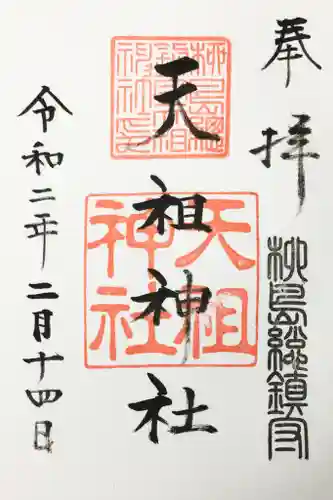 奉拝
柳島総鎮守
天祖神社
天祖
神社
令和二年二月十四日